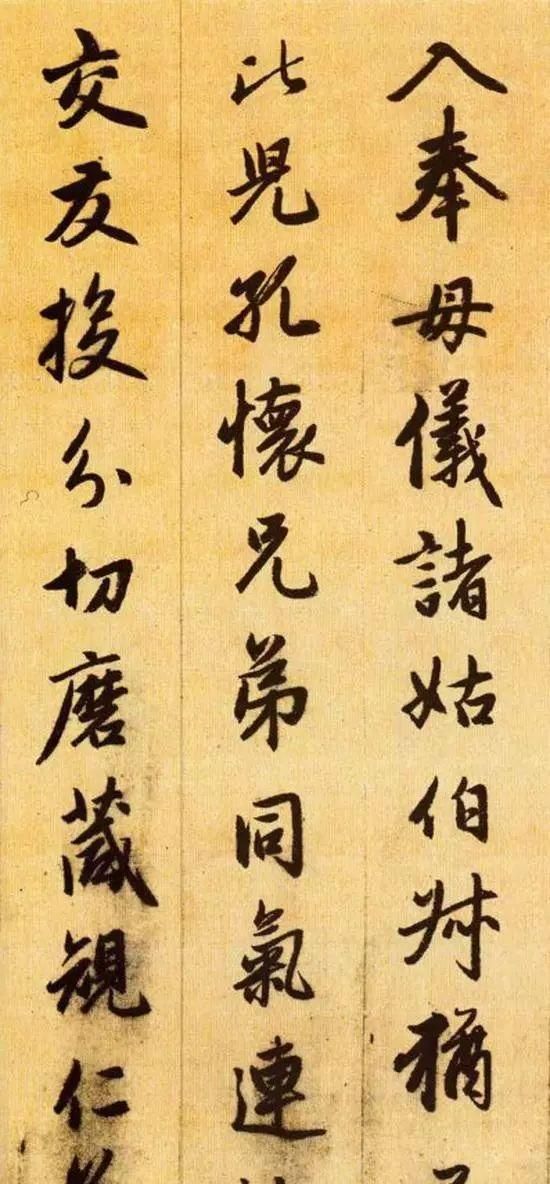 入奉母儀諸姑伯叔猶
比兒孔懷兄弟同氣連
交友投分切磨箴規仁